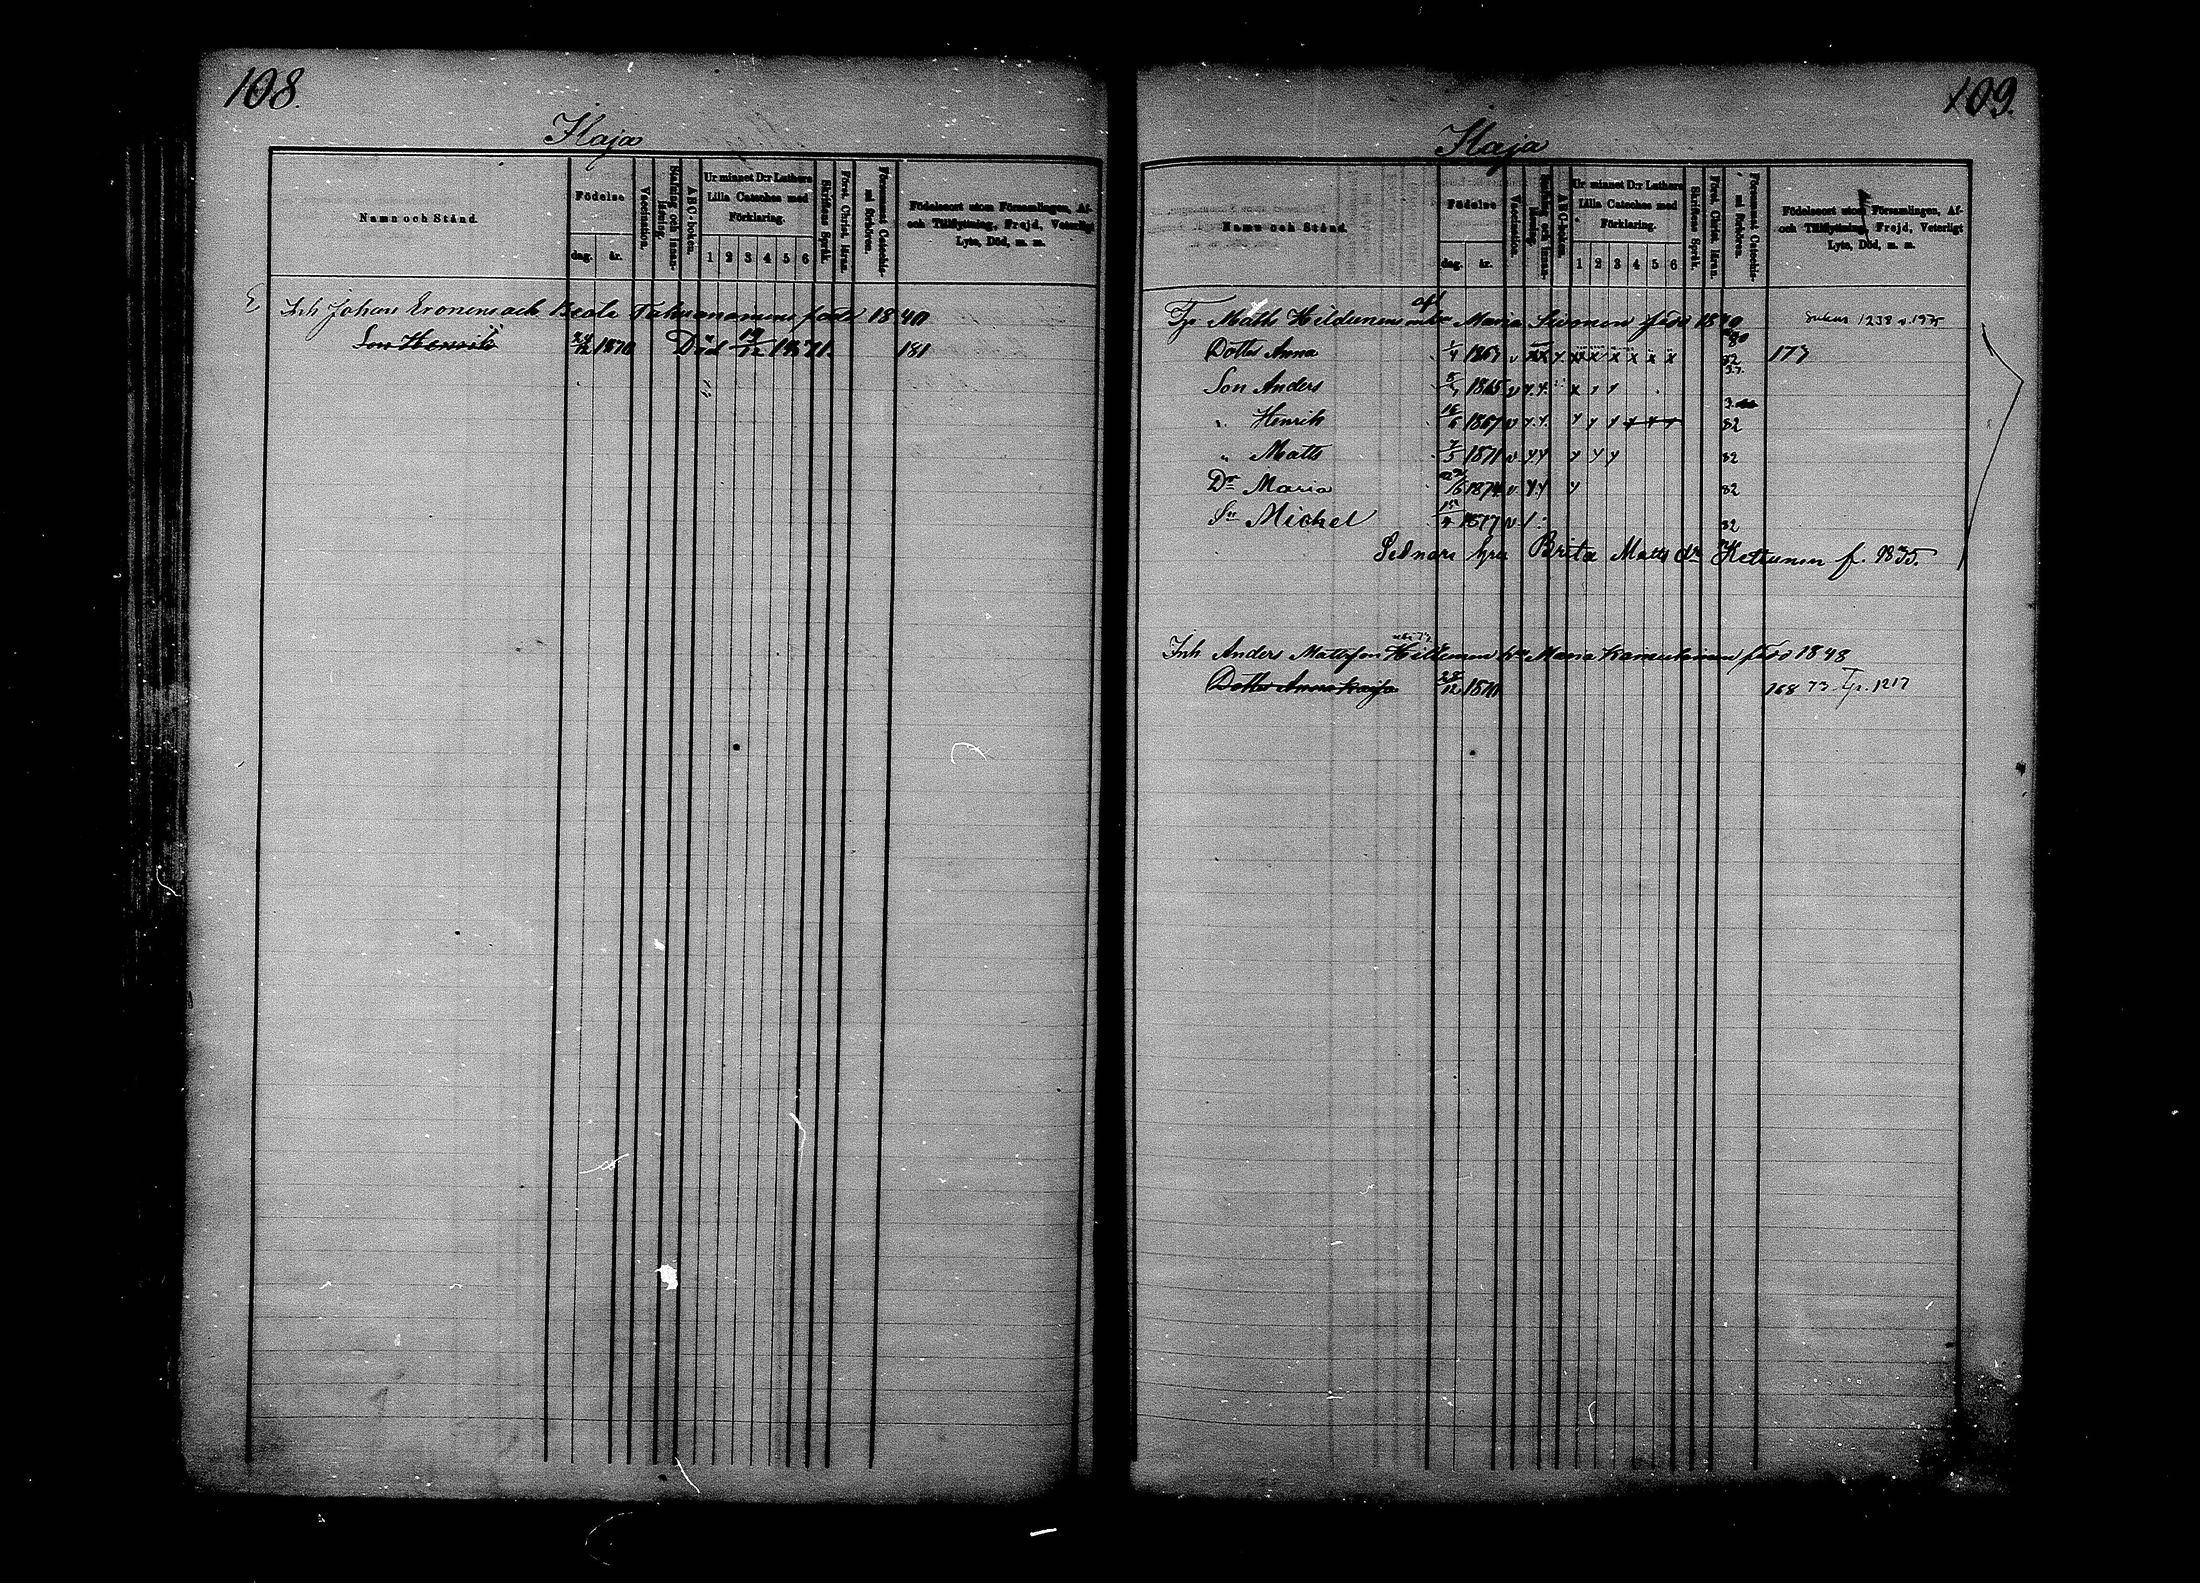 108.
Ilaja
Namn och Stånd.
Födelse
dag. år.
Vaccination.
Stafning och Innanläsning.
A B C-boken.
Ur minnet D:r Luthers Lilla Cateches med Förklaring.
1 2 3 4 5 6
Skriftens Språk.
Först. Christ. läran.
Försummat Catechismi förhören.
Födelseort utom Församlingen, Af- och Tillflyttning, Frejd, Veterligt Lyte, Död, m. m.
Inh Johan Eronens och Beata född 1840
Son Henrik 1870 Död 19/12 1871. 181
109.
Ilaja
Namn och Stånd.
Födelse
dag. år.
Vaccination.
Stafning och Innanläsning.
A B C-boken.
Ur minnet D:r Luthers Lilla Cateches med Förklaring.
1 2 3 4 5 6
Skriftens Språk.
Först. Christ. läran.
Försummat Catechismi förhören.
Födelseort utom Församlingen, Af- och Tillflyttning, Frejd, Veterligt Lyte, Död, m. m.
Matts Hildunens Maria född
Dotter Anna 1/4 1863 v xx x x x x x x 82 177
Son Anders 1865 v y.y. x
" Henrik 16/6 1867 v y.y. 82
" Matts 7/5 1871 v y.y y y y 82
Dr Maria 1874 v y.y y 82
Sn Michel 15/4 1877 v / 82
Sednare hru Brita Matts dr Kettunen f. 1835.
Inh Anders Mattsson Hildunens hu Maria född 1848
Dotter Anna Kaisa 28/12 1870 168 73 1217